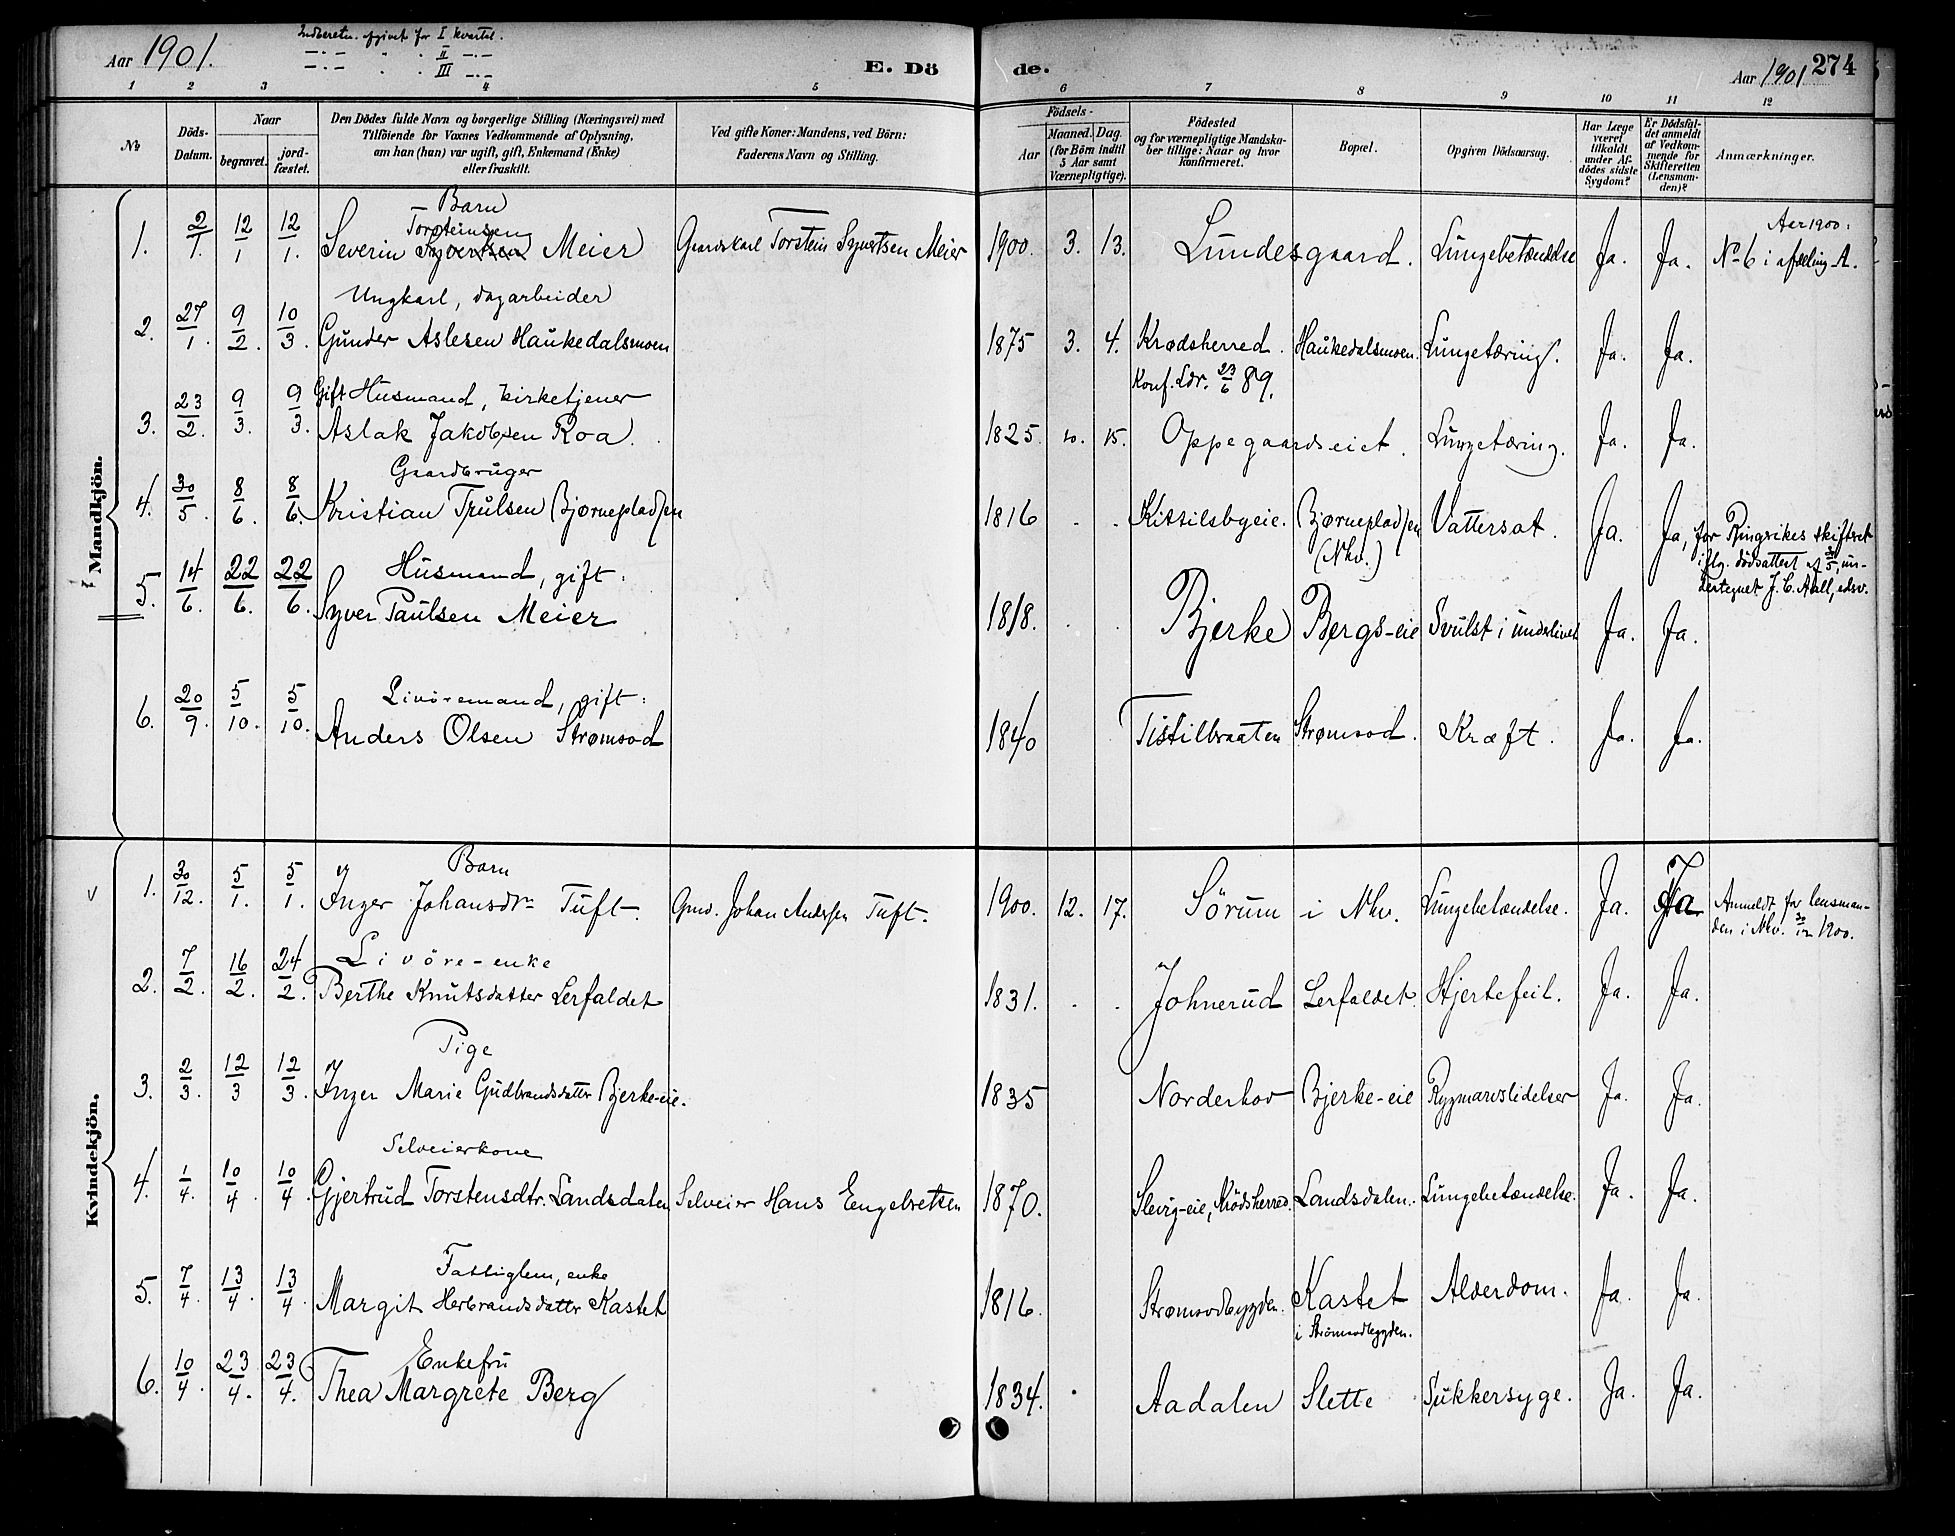 Aar 1901.
Indberetn. afgivet for I kvartal.
—.— " . II —.—
—.— " . III —.—
E. Dö
de.
Aar 1901
274
1 2 3 4 5 6 7 8 9 10 11 12
No
Döds-Datum.
Naar
begravet.
jord-fæstet.
Den Dödes fulde Navn og borgerlige Stilling (Næringsvei) med
Tilföiende for Voxnes Vedkommende af Oplysning,
om han (hun) var ugift, gift, Enkemand (Enke)
eller fraskilt.
Ved gifte Koner: Mandens, ved Börn:
Faderens Navn og Stilling.
Födsels-
Aar
Maaned. Dag.
(for Börn indtil
5 Aar samt
Værnepligtige).
Födested
og for værnepligtige Mandska-
ber tillige: Naar og hvor
Konfirmeret.
Bopæl.
Opgiven Dödsaarsag.
Har Læge
været
tilkaldt
under Af-
dödes sidste
Sygdom?
Er Dödsfal-
det anmeldt
af Vedkom-
mende for
Skifteretten
(Lensman-
den)?
Anmærkninger.
Mandkjön.
Barn
Torsteinsen
1. 2/1. 12/1 12/1. Severin Syvertsen Meier Gaardskarl Torstein Syvertsen Meier 1900. 3. 13. Lundesgaard. Lungebetændelse Ja. Ja. Aar 1900:
No 6 i afdeling A.
Ungkarl, dagarbeider
2. 27/1. 9/2. 10/3. Gunder Aslesen Haukedalsmoen 1875 3. 4. Krødsherred. Haukedalsmoen. Lungetæring. Ja. Ja.
Konf. Ldr. 23/6 89.
Gift Husmand, kirketjener
3. 23/2. 9/3. 9/3. Aslak Jakobsen Roa. 1825. 10. 15. Oppegaardseiet. Lungetæring. Ja. Ja.
Gaardbruger
4. 30/5. 8/6. 8/6. Kristian Trulsen Bjørnepladsen 1816 . . Kitsilsbyeie. Bjørnepladsen
(Nhv.) Vattersot. Ja. Ja, for Ringrikes skifteret
iflg. dødsattest af 31/5, un-
dertegnet J. C. Aall, edsv.
Husmand, gift:
5. 14/6. 22/6. 22/6. Syver Paulsen Meier 1818. . . Bjerke Bergs-eie Svulst i underlivet Ja. Ja.
Livöremand, gift:
6. 20/9. 5/10. 5/10. Anders Olsen Strømsod 1840 Tistilbraaten Strømsod. Kræft. Ja. Ja.
Kvindekjön.
Barn
1. 30/12. 5/1. 5/1. Inger Johansdr Tuft. Gmd. Johan Andersen Tuft. 1900. 12. 17. Sörum i Nhv. Lungebetændelse. Ja. Ja Anmeldt for lensman-
den i Nhv. 30/12 1900.
Livöre-enke
2. 7/2. 16/2. 24/2. Berthe Knutsdatter Lerfaldet 1831. . . Johnerud Lerfaldet. Hjertefeil. Ja. Ja.
Pige
3. 2/3. 12/3 12/3. Inger Marie Gudbrandsdatter Bjerke-eie. 1835 Norderhov Bjerke-eie Rygmarvslidelser Ja. Ja.
Selveierkone
4. 1/4. 10/4. 10/4. Gjertrud Torstensdtr. Landsdalen Selveier Hans Engebretsen 1870. Slevig-eie, Krödsherred. Landsdalen. Lungebetændelse. Ja. Ja.
Fattiglem, enke
5. 7/4. 13/4. 13/4. Margit Herbrandsdatter Kastet 1816. Strømsodbygden. Kastet
i Strömsodbygden. Alderdom. Ja. Ja.
Enkefru
6. 10/4. 23/4. 23/4. Thea Margrete Berg 1834. . Aadalen Slette Sukkersyge. Ja. Ja.